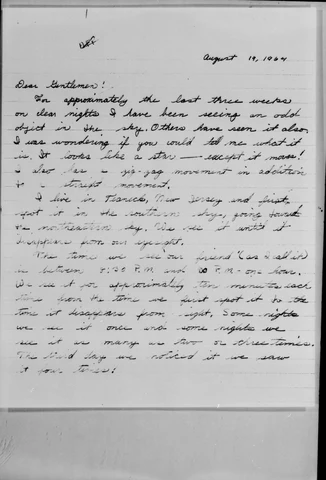 August 19, 1964
Dear Gentlemen!
For approximately the last three weeks
on clear nights I have been seeing an odd
object in the sky. Others have seen it also.
I was wondering if you could tell me what it
is. It looks like a star — except it moves!
It also has a zig-zag movement in addition
to a straight movement.
I live in New Jersey and first
spot it in the southern sky, going toward
the northeastern sky. We see it until it
disappears from our eyesight.
The time we see our friend (as I call it)
is between P.M. and P.M. - one hour.
We see it for approximately ten minutes each
time from the time we first spot it to the
time it disappears from sight. Some nights
we see it once and some nights we
see it as many as two or three times.
The third day we noticed it we saw
it four times!